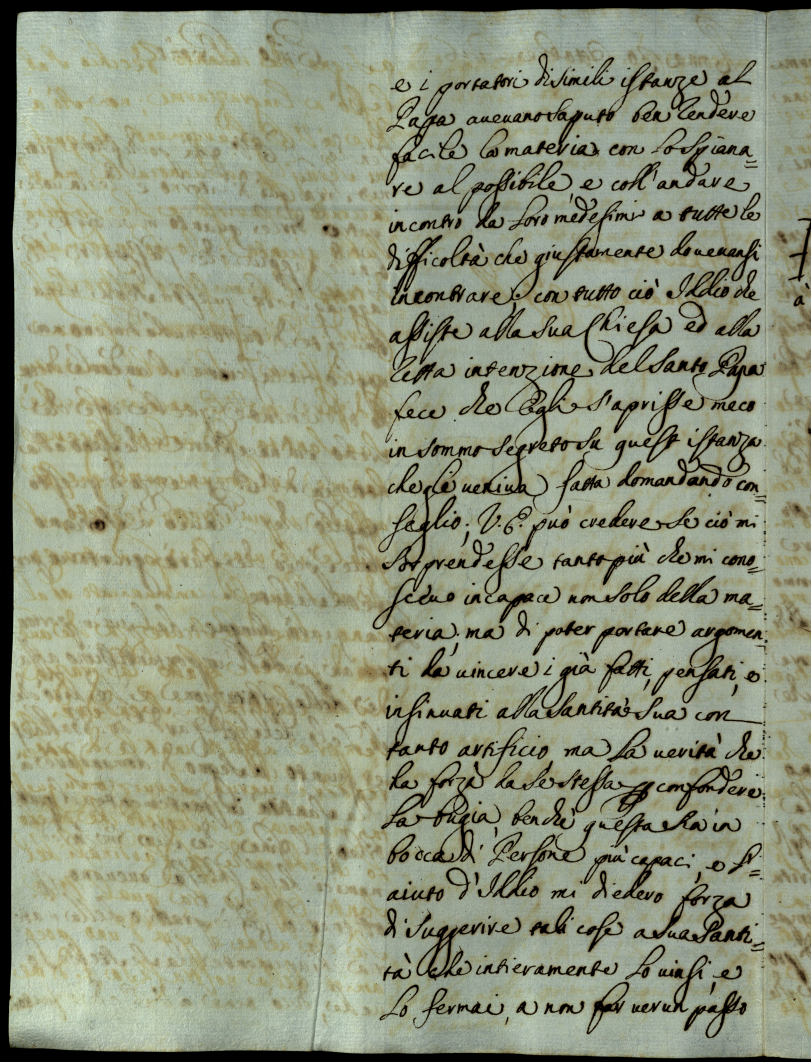 e i portatori di simili istanze al
Papa avevano saputo ben rendere
facile la materia con lo spiana=
re al possibile, e coll'andare
incontro da loro medesimi a tutte le
difficoltà che giustamente dovevansi
incontrare; con tutto ciò Iddio che
assiste alla sua Chiesa ed alla
retta intenzione del Santo Papa
fece che Egli s'aprisse meco
in sommo segreto su quest'istanza
che le veniva fatta domandando con=
seglio; V.E. può credere se ciò mi
sorprendesse tanto più che mi cono=
scevo incapace non solo della ma=
teria, ma di poter portare argomen
ti da vincere i già fatti, pensati, e
insinuati alla Santità Sua con
tanto artificio ma la verità che
ha forza da se stessa p confondere
la bugia, benchè questa sia in
bocca di Persone più capaci, e l'=
aiuto d'Iddio mi diedero forza
di suggerire tali cose a Sua Santi=
tà che intieramente lo vinsi, e
lo fermai, a non far verun passo